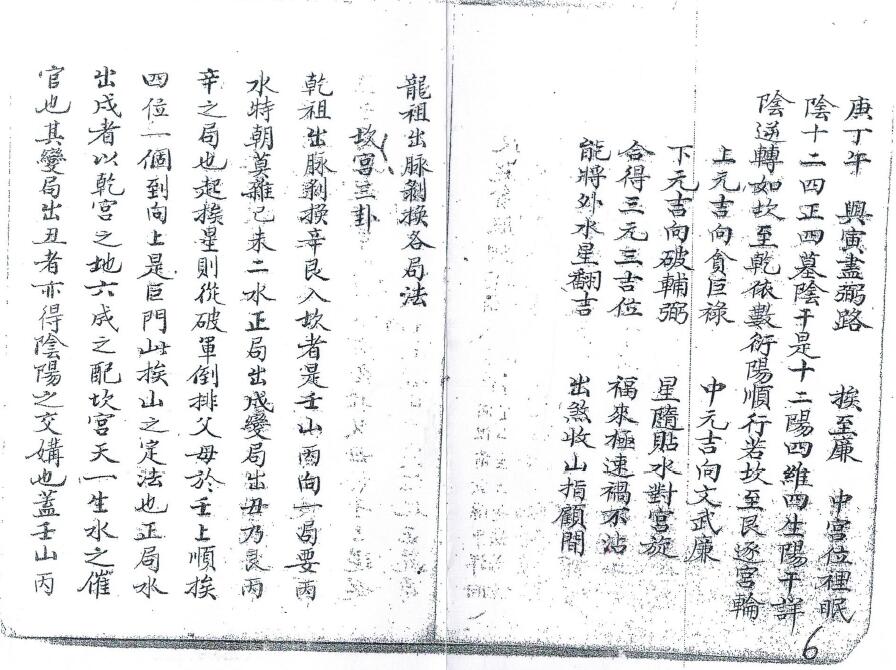 庚丁午 興寅盡弼路 挨至廉 中宮位裡眠
陰十二四正四墓陰干是十二陽四維四生陽干詳
陰逆轉如坎至乾依數衍陽順行若坎至艮逐宮輪
上元吉向貪巨祿 中元吉向文武廉
下元吉向破輔弼 星隨貼水對宮旋
合得三元三吉位 福來極速禍不沾
能將外水星翻吉 出煞收山指顧間
龍祖出脉剝換各局法
坎宮三卦
乾祖出脉剝換辛艮入坎者是壬山丙向一局要丙
水特朝莫雜己未二水正局出戍變局出丑乃艮丙
辛之局也起挨星則從破軍倒排父母於壬上順挨
四位一個到向上是巨門山挨山之定法也正局水
出戍者以乾宮之地六成之配坎宮天一生水之催
官也其變局出丑者亦得陰陽之交媾也蓋壬山丙
6